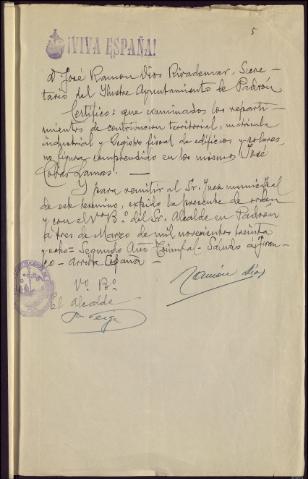 5
¡VIVA ESPAÑA!
D. José Ramon Dios Rivademar, Secre-
tario del Ilustre Ayuntamiento de Padrón
Certifico: que examinados los reparti-
mientos de contribucion territorial, matricula
industrial y Registro fiscal de edificios y solares
no figura comprendido en los mismos José
Cobas Ramos.-
Y para remitir al Sr. Juez municipal
de este termino, expido la presente de orden
y con el Vº Bº del Sr. Alcalde en Padron
a tres de Marzo de mil novecientos treinta
y ocho = Segundo Año Triunfal - Saludo a Fran-
co - Arriba España -
Vº Bº
El Alcalde
Ramon Dios